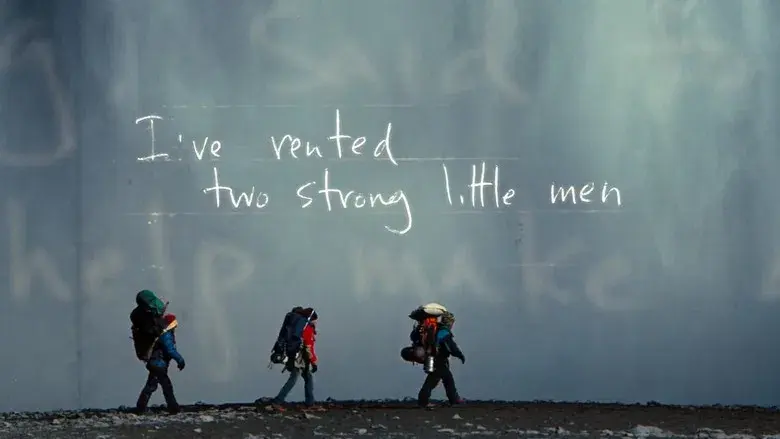 I've rented
two strong little men
help make